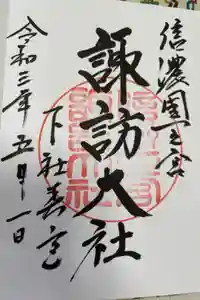 信濃國一之宮
諏訪大社
下社春宮
令和三年五月一日